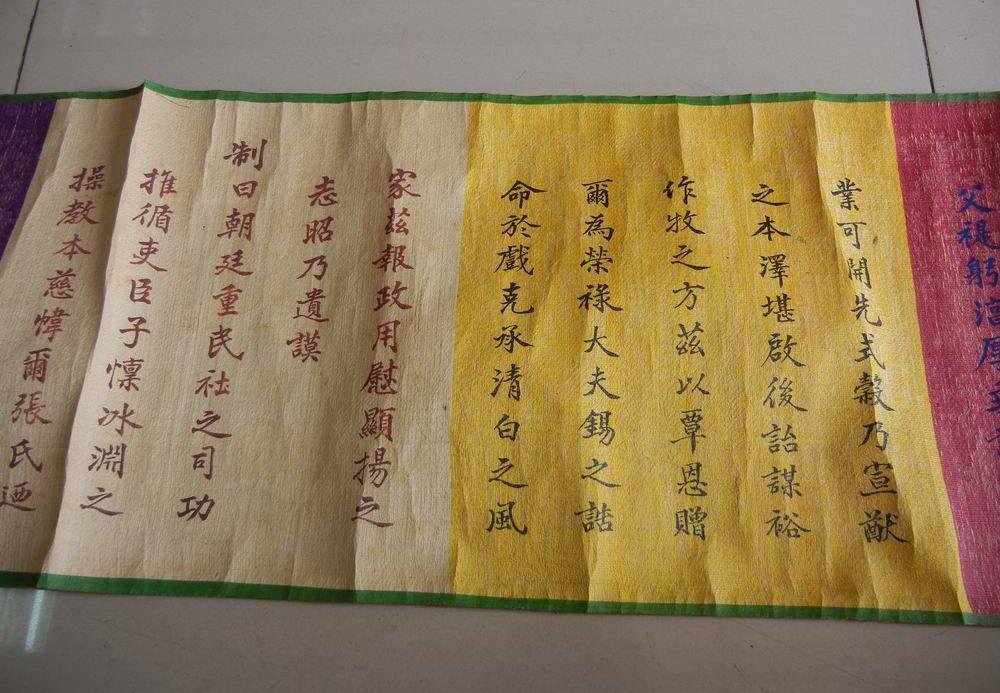 父禔躬淳厚
業可開先式榖乃宣猷
之本澤堪啟後詒謀裕
作牧之方茲以覃恩贈
爾為榮祿大夫錫之誥
命於戲克承清白之風
家茲報政用慰顯揚之
志昭乃遺謨
制曰朝廷重民社之司功
推循吏臣子懍冰淵之
操教本慈幃爾張氏迺